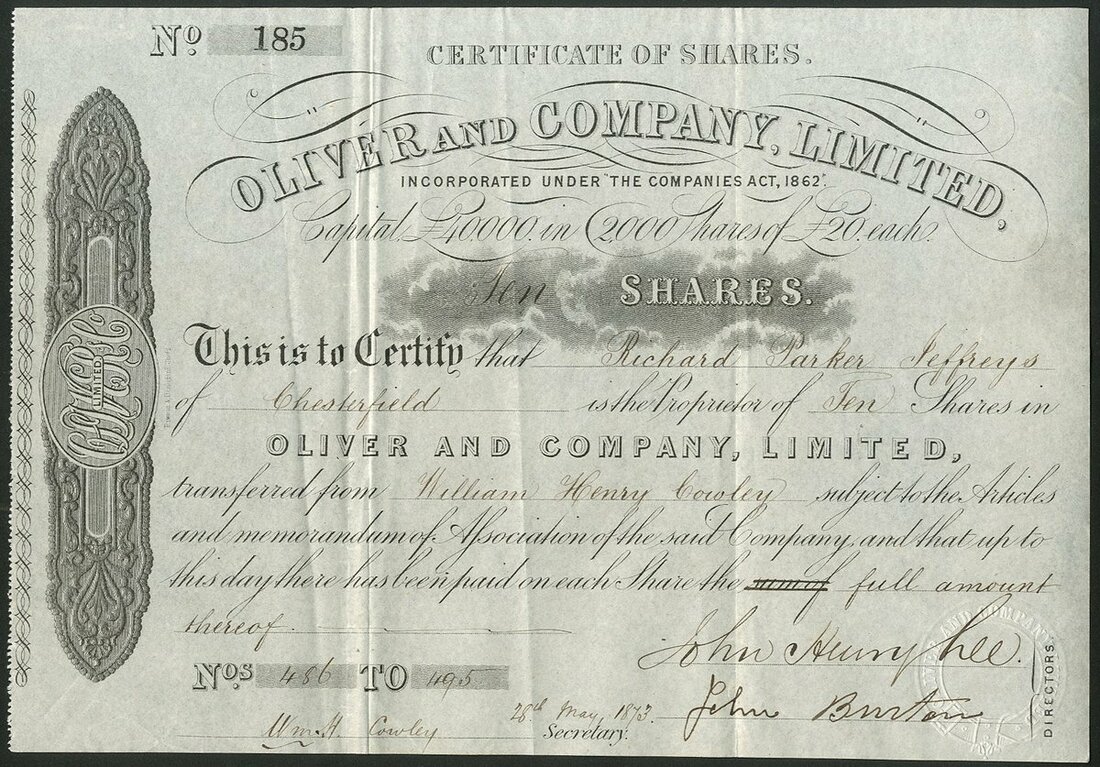 No. 185
CERTIFICATE OF SHARES.
OLIVER AND COMPANY, LIMITED,
INCORPORATED UNDER "THE COMPANIES ACT, 1862".
Capital £40,000. in 2000 Shares of £20. each.
Ten SHARES.
This is to Certify that Richard Parker Jeffreys
of Chesterfield is the Proprietor of Ten Shares in
OLIVER AND COMPANY, LIMITED,
transferred from William Henry Cowley subject to the Articles
and memorandum of Association of the said Company, and that up to
this day there has been paid on each Share the full amount
thereof
Nos 486 TO 495
John Henry Lee.
John Burton
DIRECTORS.
28th May, 1873.
Wm. H. Cowley Secretary.
LIMITED